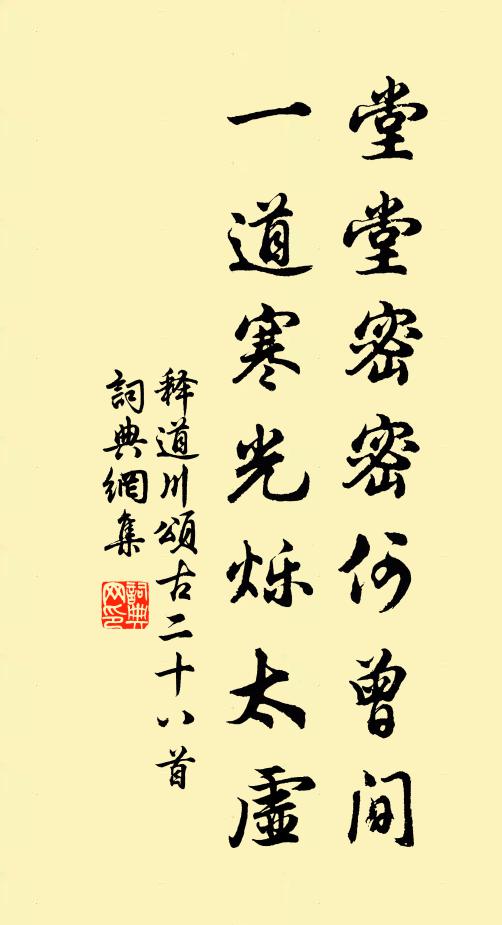 堂堂密密何曾间
一道寒光烁太虚
释道川颂古二十八首
詞典網集
詞典网印